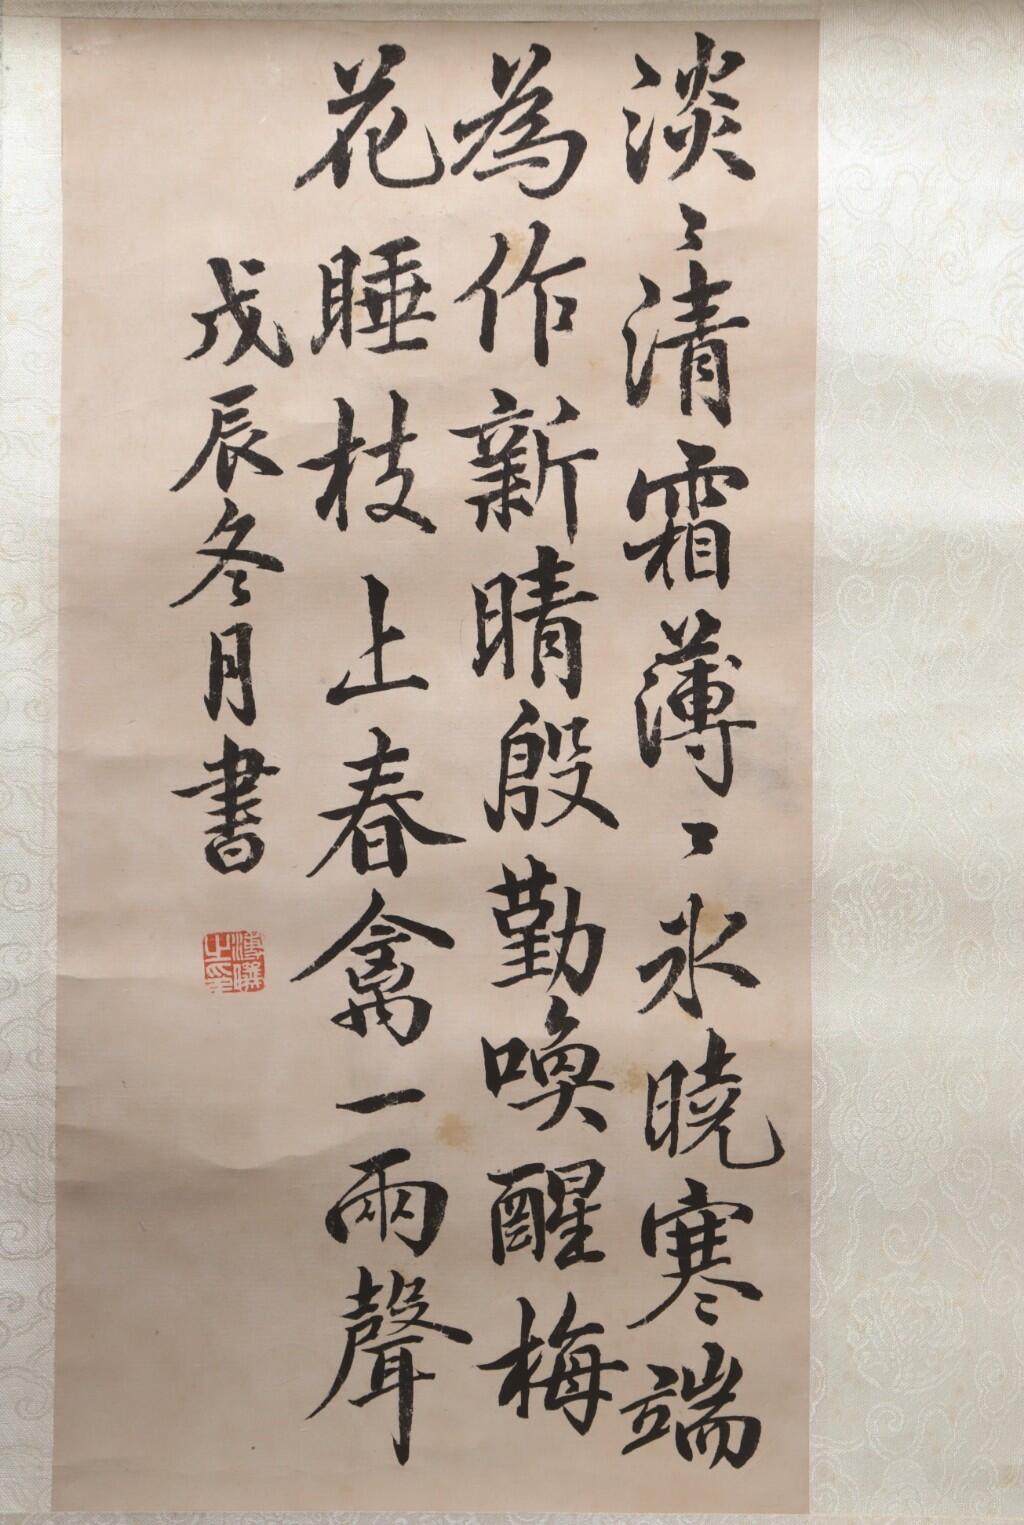 淡〻清霜薄〻冰曉寒端
為作新晴殷勤喚醒梅
花睡枝上春禽一兩聲
戊辰冬月書
之印